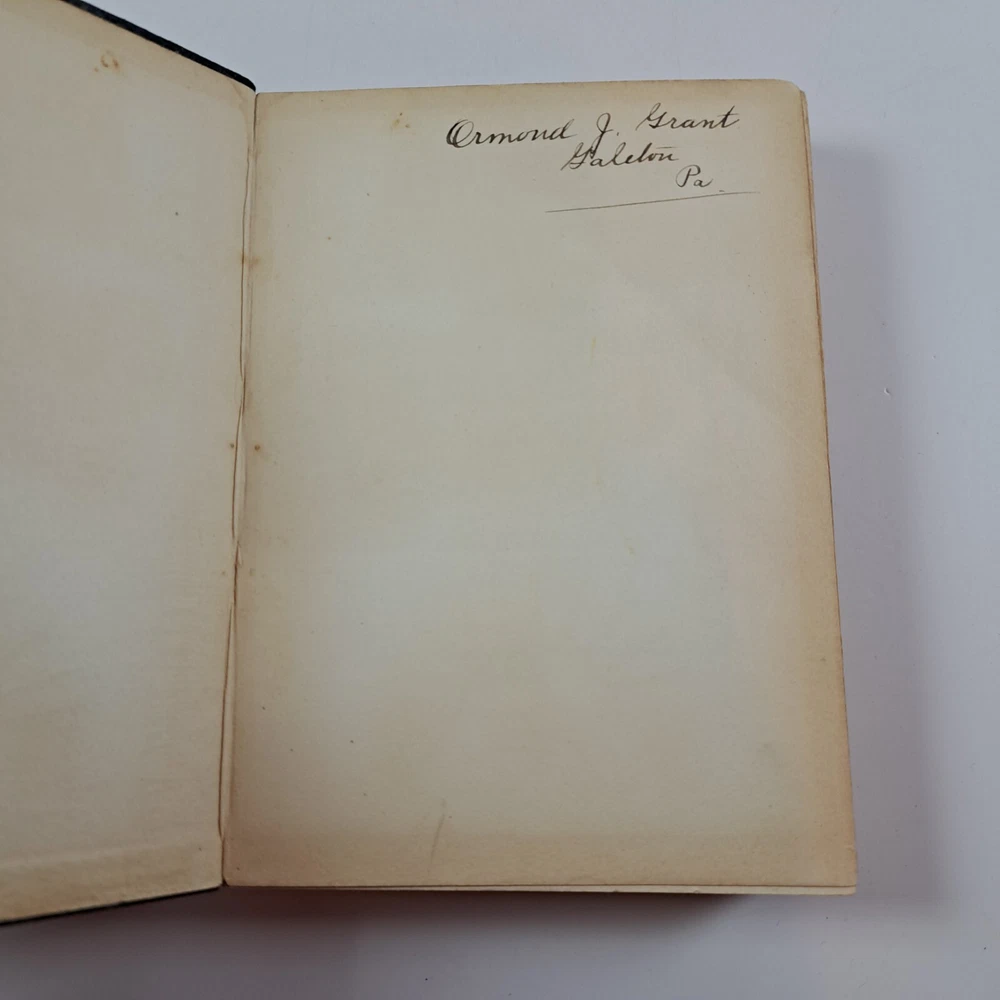 Ormond J. Grant
Galeton
Pa.